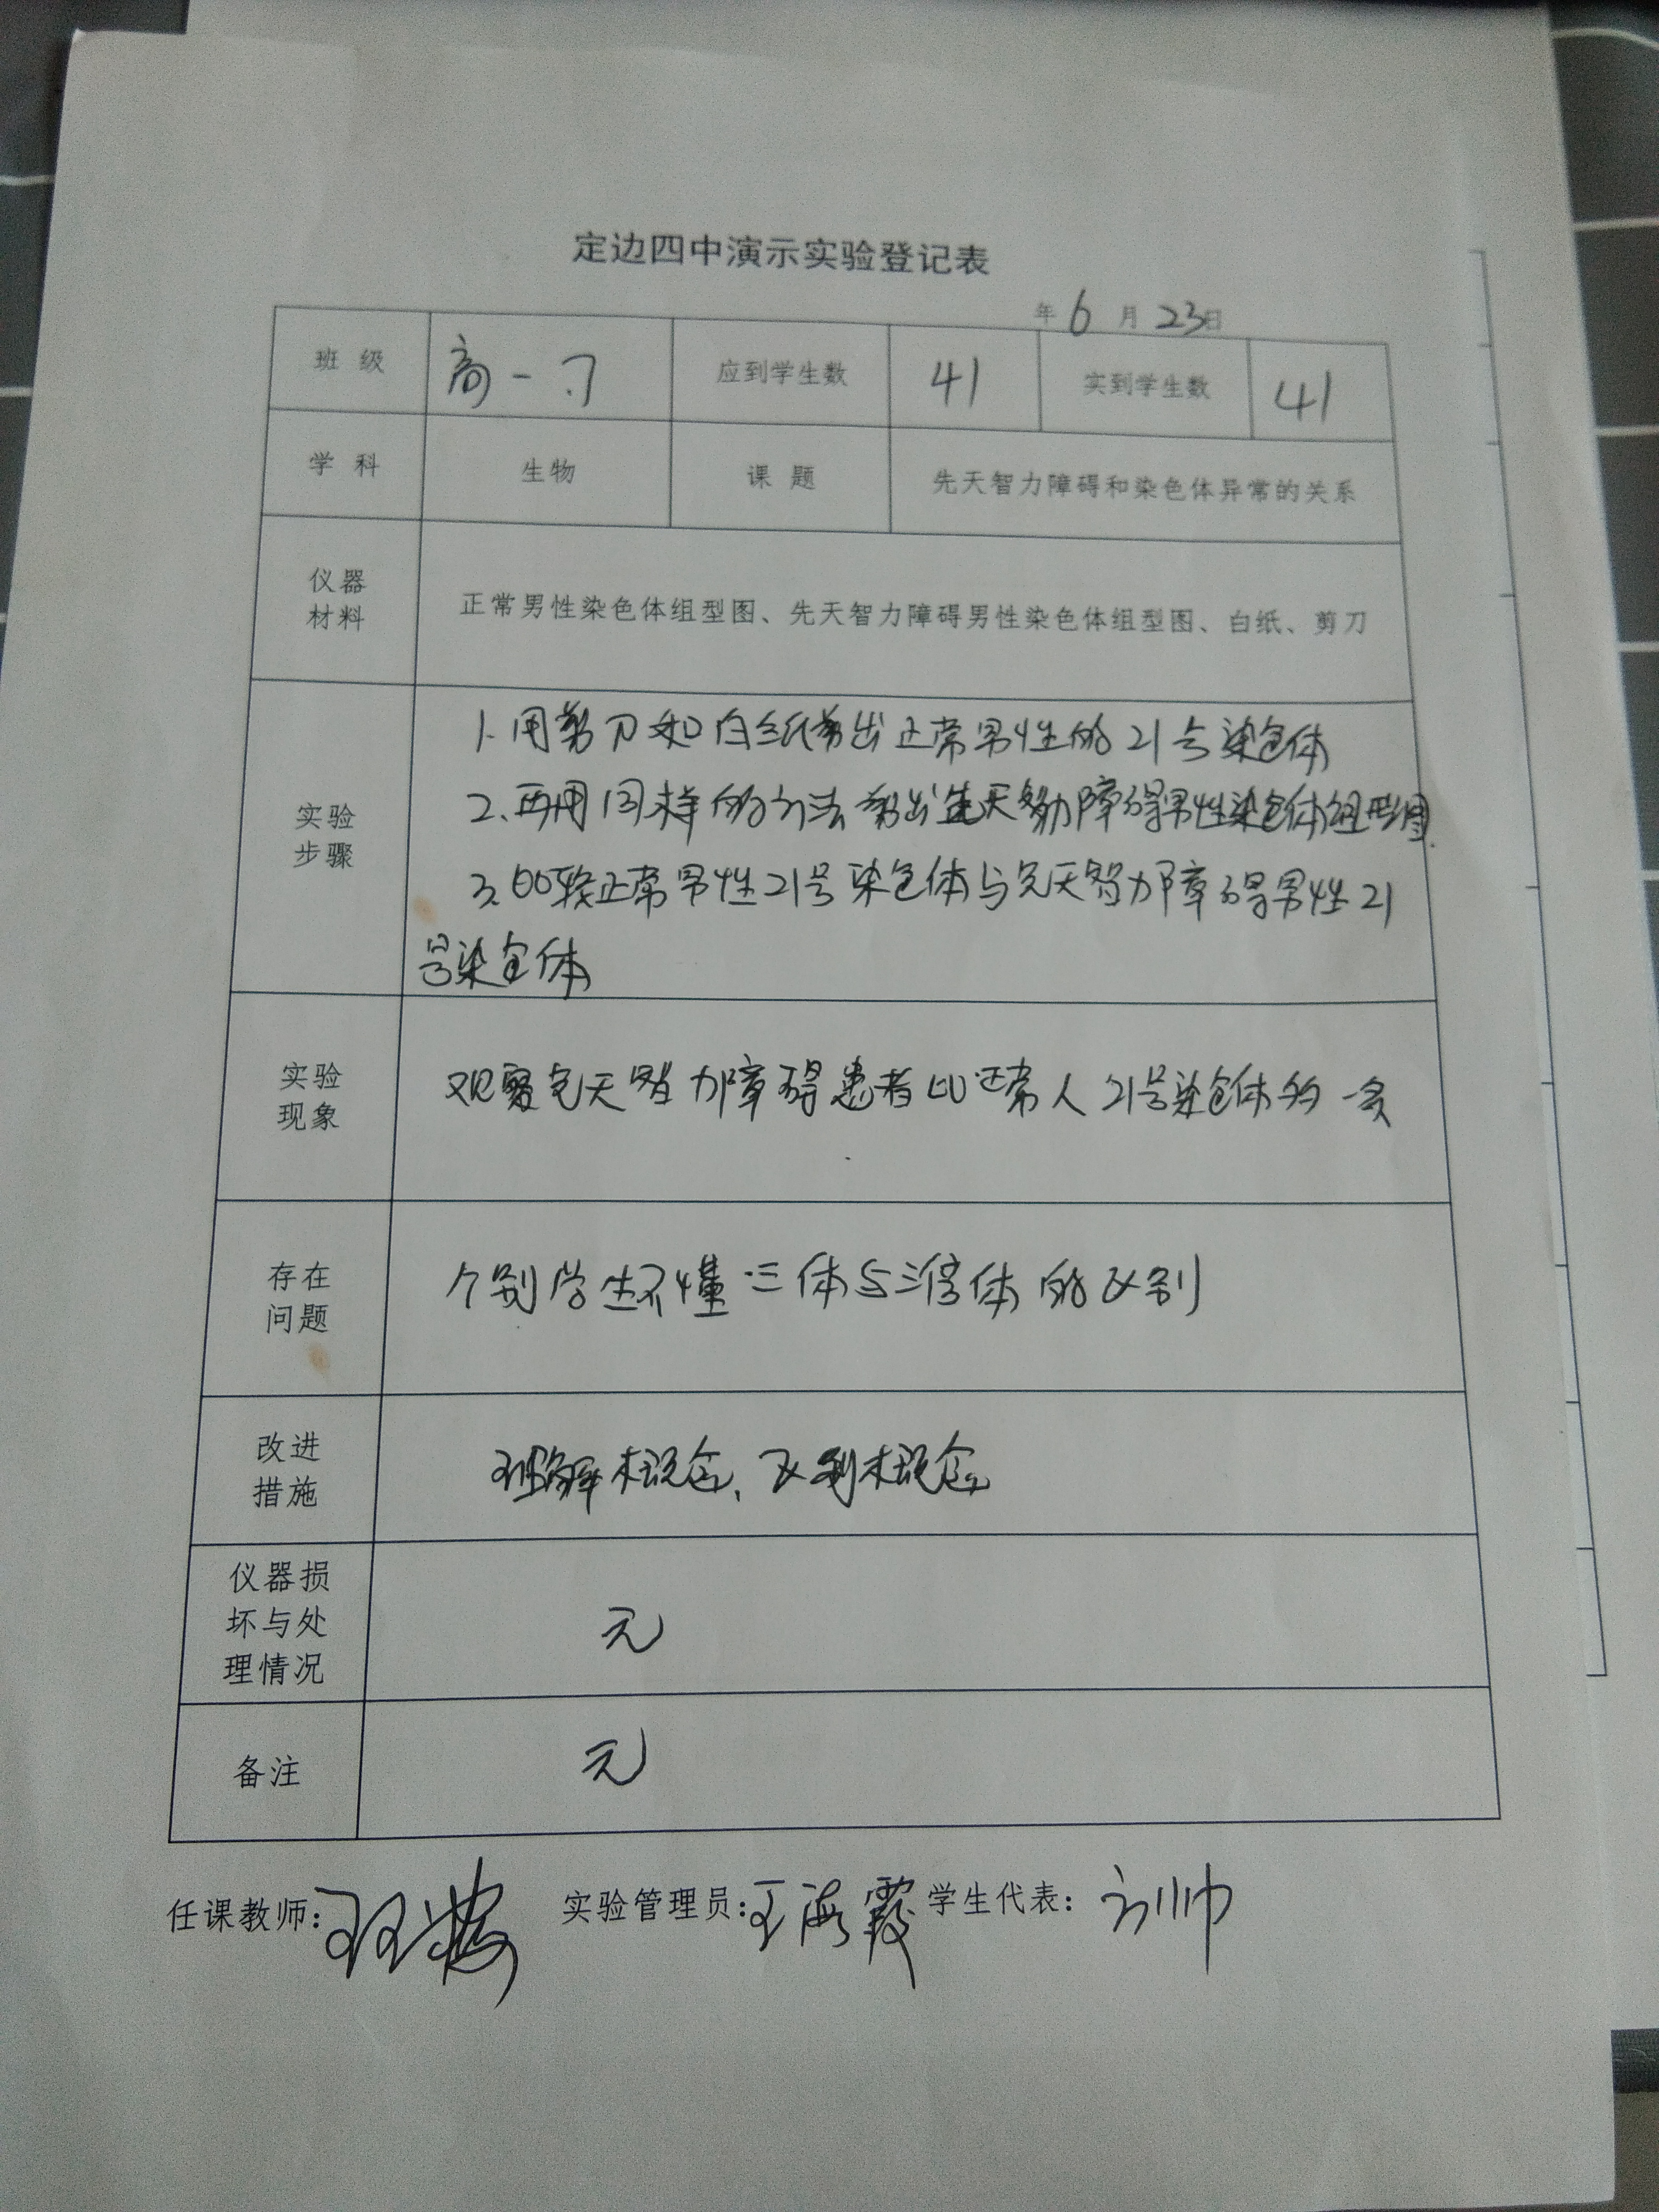 定边四中演示实验登记表
年 6 月 23日
班 级 高一.7 应到学生数 41 实到学生数 41
学 科 生物 课 题 先天智力障碍和染色体异常的关系
仪器
材料
正常男性染色体组型图、先天智力障碍男性染色体组型图、白纸、剪刀
实验
步骤
1. 用剪刀和白纸剪出正常男性的21号染色体
2. 再用同样的方法剪出先天智力障碍男性染色体组型图.
3. 比较正常男性21号染色体与先天智力障碍男性21
号染色体
实验
现象
观察先天智力障碍患者比正常人21号染色体多一条
存在
问题
个别学生不懂三体与三倍体的区别
改进
措施
理解概念、区别概念
仪器损
坏与处
理情况
无
备注
无
任课教师: 实验管理员:王海霞 学生代表: 刘帅